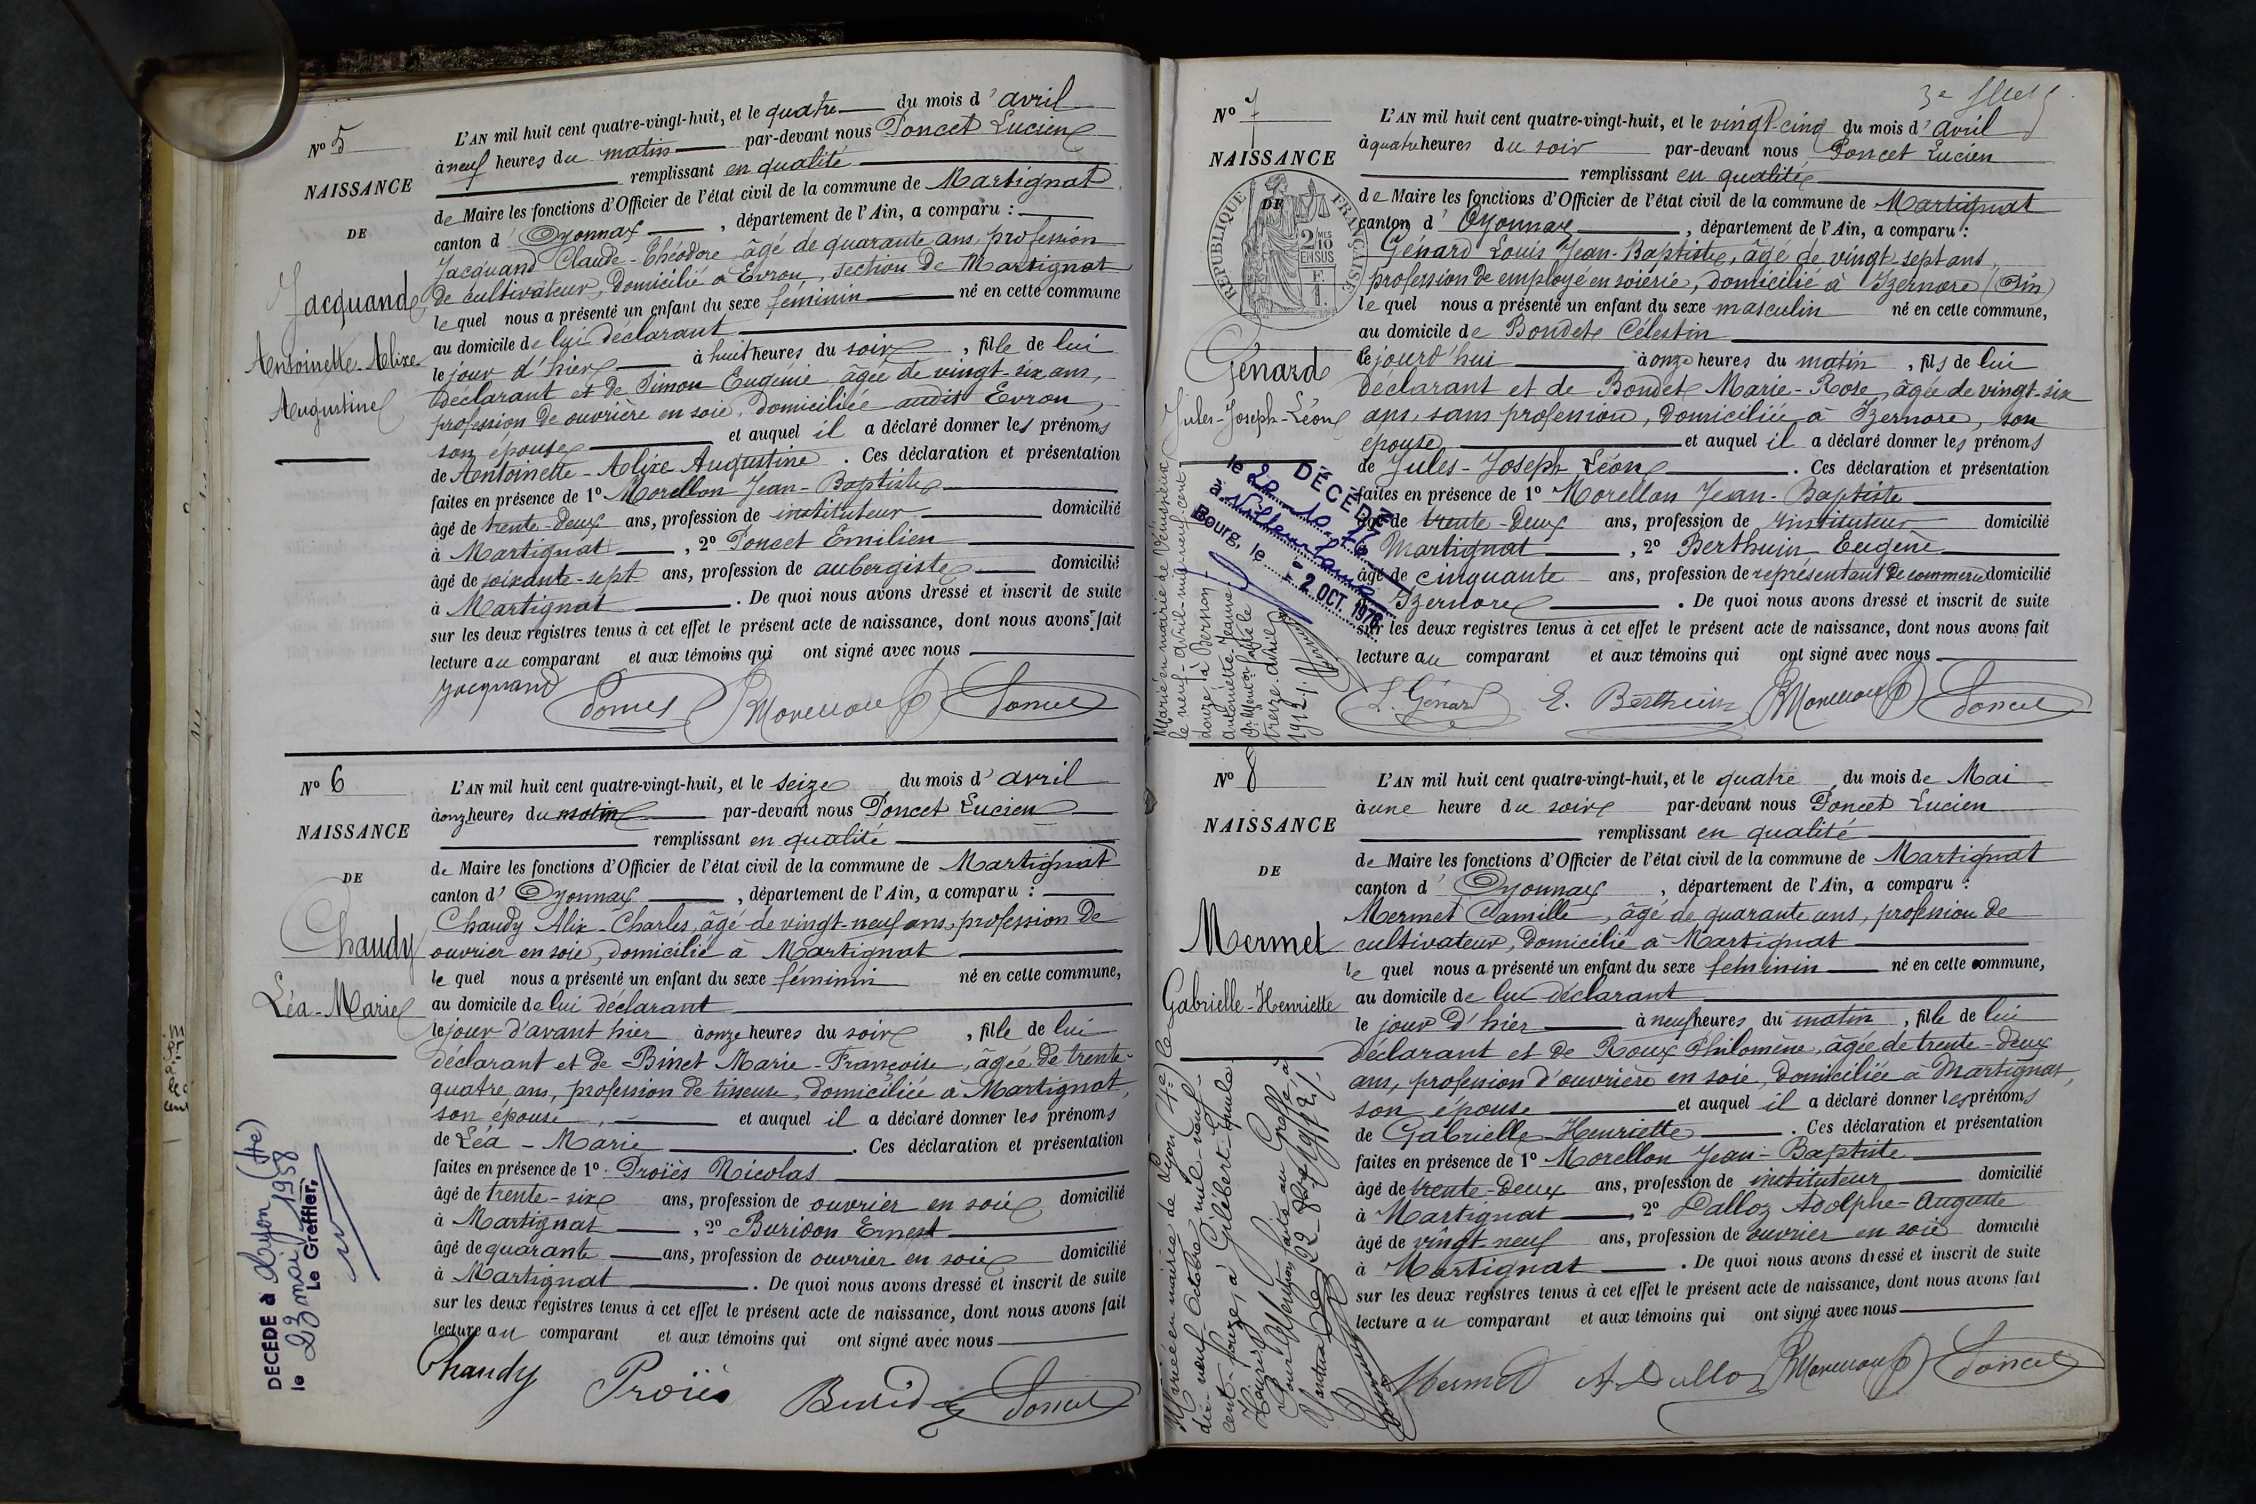 N° 5
NAISSANCE
DE
Jacquand
Antoinette-Alixe
Augustine
L'AN mil huit cent quatre-vingt-huit, et le quatre du mois d'avril
à neuf heures du matin par-devant nous Poncet Lucien
remplissant en qualité
de Maire les fonctions d'Officier de l'état civil de la commune de Martignat
canton d'Oyonnax, département de l'Ain, a comparu :
Jacquand Claude-Théodore, âgé de quarante ans, profession
de cultivateur, domicilié à Evron, section de Martignat
le quel nous a présenté un enfant du sexe féminin né en cette commune
au domicile de lui déclarant
le jour d'hier à huit heures du soir, fille de lui
déclarant et de Simon Eugénie âgée de vingt-six ans,
profession de ouvrière en soie, domiciliée audit Evron,
son épouse et auquel il a déclaré donner les prénoms
de Antoinette-Alixe Augustine. Ces déclaration et présentation
faites en présence de 1° Morellon Jean-Baptiste
âgé de trente-deux ans, profession de instituteur domicilié
à Martignat, 2° Poncet Emilien
âgé de soixante-sept ans, profession de aubergiste domicilié
à Martignat. De quoi nous avons dressé et inscrit de suite
sur les deux registres tenus à cet effet le présent acte de naissance, dont nous avons fait
lecture au comparant et aux témoins qui ont signé avec nous
Jacquand Poncet Morellon Poncet
N° 6
NAISSANCE
DE
Chaudy
Léa-Marie
L'AN mil huit cent quatre-vingt-huit, et le seize du mois d'avril
à onze heures du matin par-devant nous Poncet Lucien
remplissant en qualité
de Maire les fonctions d'Officier de l'état civil de la commune de Martignat
canton d'Oyonnax, département de l'Ain, a comparu :
Chaudy Alix-Charles, âgé de vingt-neuf ans, profession de
ouvrier en soie, domicilié à Martignat
le quel nous a présenté un enfant du sexe féminin né en cette commune,
au domicile de lui déclarant
le jour d'avant hier à onze heures du soir, fille de lui
déclarant et de Binet Marie-Françoise, âgée de trente-
quatre ans, profession de tisseuse, domiciliée à Martignat,
son épouse, et auquel il a déclaré donner les prénoms
de Léa-Marie. Ces déclaration et présentation
faites en présence de 1° Proiiès Nicolas
âgé de trente-six ans, profession de ouvrier en soie domicilié
à Martignat, 2° Buridon Ernest
âgé de quarante ans, profession de ouvrier en soie domicilié
à Martignat. De quoi nous avons dressé et inscrit de suite
sur les deux registres tenus à cet effet le présent acte de naissance, dont nous avons fait
lecture au comparant et aux témoins qui ont signé avec nous
Chaudy Proiiès Buridon Poncet
DÉCÉDÉ à Lyon (4e)
le 23 mai 1958
Le Greffier,
3e
N° 7
NAISSANCE
DE
RÉPUBLIQUE FRANÇAISE
2 MES 10
EN SUS
Génard
Jules-Joseph-Léon
L'AN mil huit cent quatre-vingt-huit, et le vingt-cinq du mois d'avril
à quatre heures du soir par-devant nous Poncet Lucien
remplissant en qualité
de Maire les fonctions d'Officier de l'état civil de la commune de Martignat
canton d'Oyonnax, département de l'Ain, a comparu :
Génard Louis Jean-Baptiste, âgé de vingt-sept ans,
profession de employé en soierie, domicilié à Izernore (Ain)
le quel nous a présenté un enfant du sexe masculin né en cette commune,
au domicile de Bondet Célestin
ce jourd'hui à onze heures du matin, fils de lui
déclarant et de Bondet Marie-Rose, âgée de vingt-six
ans, sans profession, domiciliée à Izernore, son
épouse et auquel il a déclaré donner les prénoms
de Jules-Joseph Léon. Ces déclaration et présentation
faites en présence de 1° Morellon Jean-Baptiste
âgé de trente-deux ans, profession de instituteur domicilié
Martignat, 2° Berthuin Eugène
âgé de cinquante ans, profession de représentant de commerce domicilié
Izernore. De quoi nous avons dressé et inscrit de suite
sur les deux registres tenus à cet effet le présent acte de naissance, dont nous avons fait
lecture au comparant et aux témoins qui ont signé avec nous
L. Génard E. Berthuin Morellon Poncet
DÉCÉDÉ
le 20 10
à Villeurbanne
Bourg, le - 2 OCT. 1976
Marié en mairie de Vénissieux
le neuf avril mil neuf cent
douze, à Perron
Antoinette-Jeanne.
Mention faite le
treize avril
1912.
N° 8
NAISSANCE
DE
Mermet
Gabrielle-Henriette
L'AN mil huit cent quatre-vingt-huit, et le quatre du mois de Mai
à une heure du soir par-devant nous Poncet Lucien
remplissant en qualité
de Maire les fonctions d'Officier de l'état civil de la commune de Martignat
canton d'Oyonnax, département de l'Ain, a comparu :
Mermet Camille, âgé de quarante ans, profession de
cultivateur, domicilié à Martignat
le quel nous a présenté un enfant du sexe féminin né en cette commune,
au domicile de lui déclarant
le jour d'hier à neuf heures du matin, fille de lui
déclarant et de Roux Philomène, âgée de trente-deux
ans, profession d'ouvrière en soie, domiciliée à Martignat,
son épouse et auquel il a déclaré donner les prénoms
de Gabrielle Henriette. Ces déclaration et présentation
faites en présence de 1° Morellon Jean-Baptiste
âgé de trente-deux ans, profession de instituteur domicilié
à Martignat, 2° Dalloz Adolphe-Auguste
âgé de vingt-neuf ans, profession de ouvrier en soie domicilié
à Martignat. De quoi nous avons dressé et inscrit de suite
sur les deux registres tenus à cet effet le présent acte de naissance, dont nous avons fait
lecture au comparant et aux témoins qui ont signé avec nous
Mermet A Dalloz Morellon Poncet
Mariée en mairie de Lyon (4e) le
dix-neuf octobre mil-neuf-
cent-douze, à Gilibert-
Mention faite au Greffe à
Nantua le 22 8bre 1912.